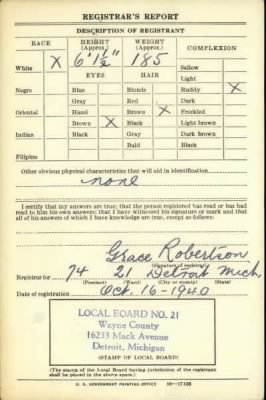 REGISTRAR'S REPORT
DESCRIPTION OF REGISTRANT
RACE HEIGHT (Approx.) WEIGHT (Approx.) COMPLEXION
White X 6' 1½" 185 Sallow
EYES HAIR Light
Negro Blue Blonde Ruddy X
Gray Red Dark
Oriental Hazel Brown X Freckled
Brown X Black Light brown
Indian Black Gray Dark brown
Bald Black
Filipino
Other obvious physical characteristics that will aid in identification
none
I certify that my answers are true; that the person registered has read or has
had read to him his own answers; that I have witnessed his signature or mark and that
all of his answers of which I have knowledge are true, except as follows:
Grace Robertson
(Signature of registrar)
Registrar for 74 21 Detroit Mich.
(Precinct) (Ward) (City or county) (State)
Date of registration Oct. 16-1940
LOCAL BOARD NO. 21
Wayne County
16233 Mack Avenue
Detroit, Michigan
(STAMP OF LOCAL BOARD)
(The stamp of the Local Board having jurisdiction of the registrant
shall be placed in the above space.)
U. S. GOVERNMENT PRINTING OFFICE 16—17105